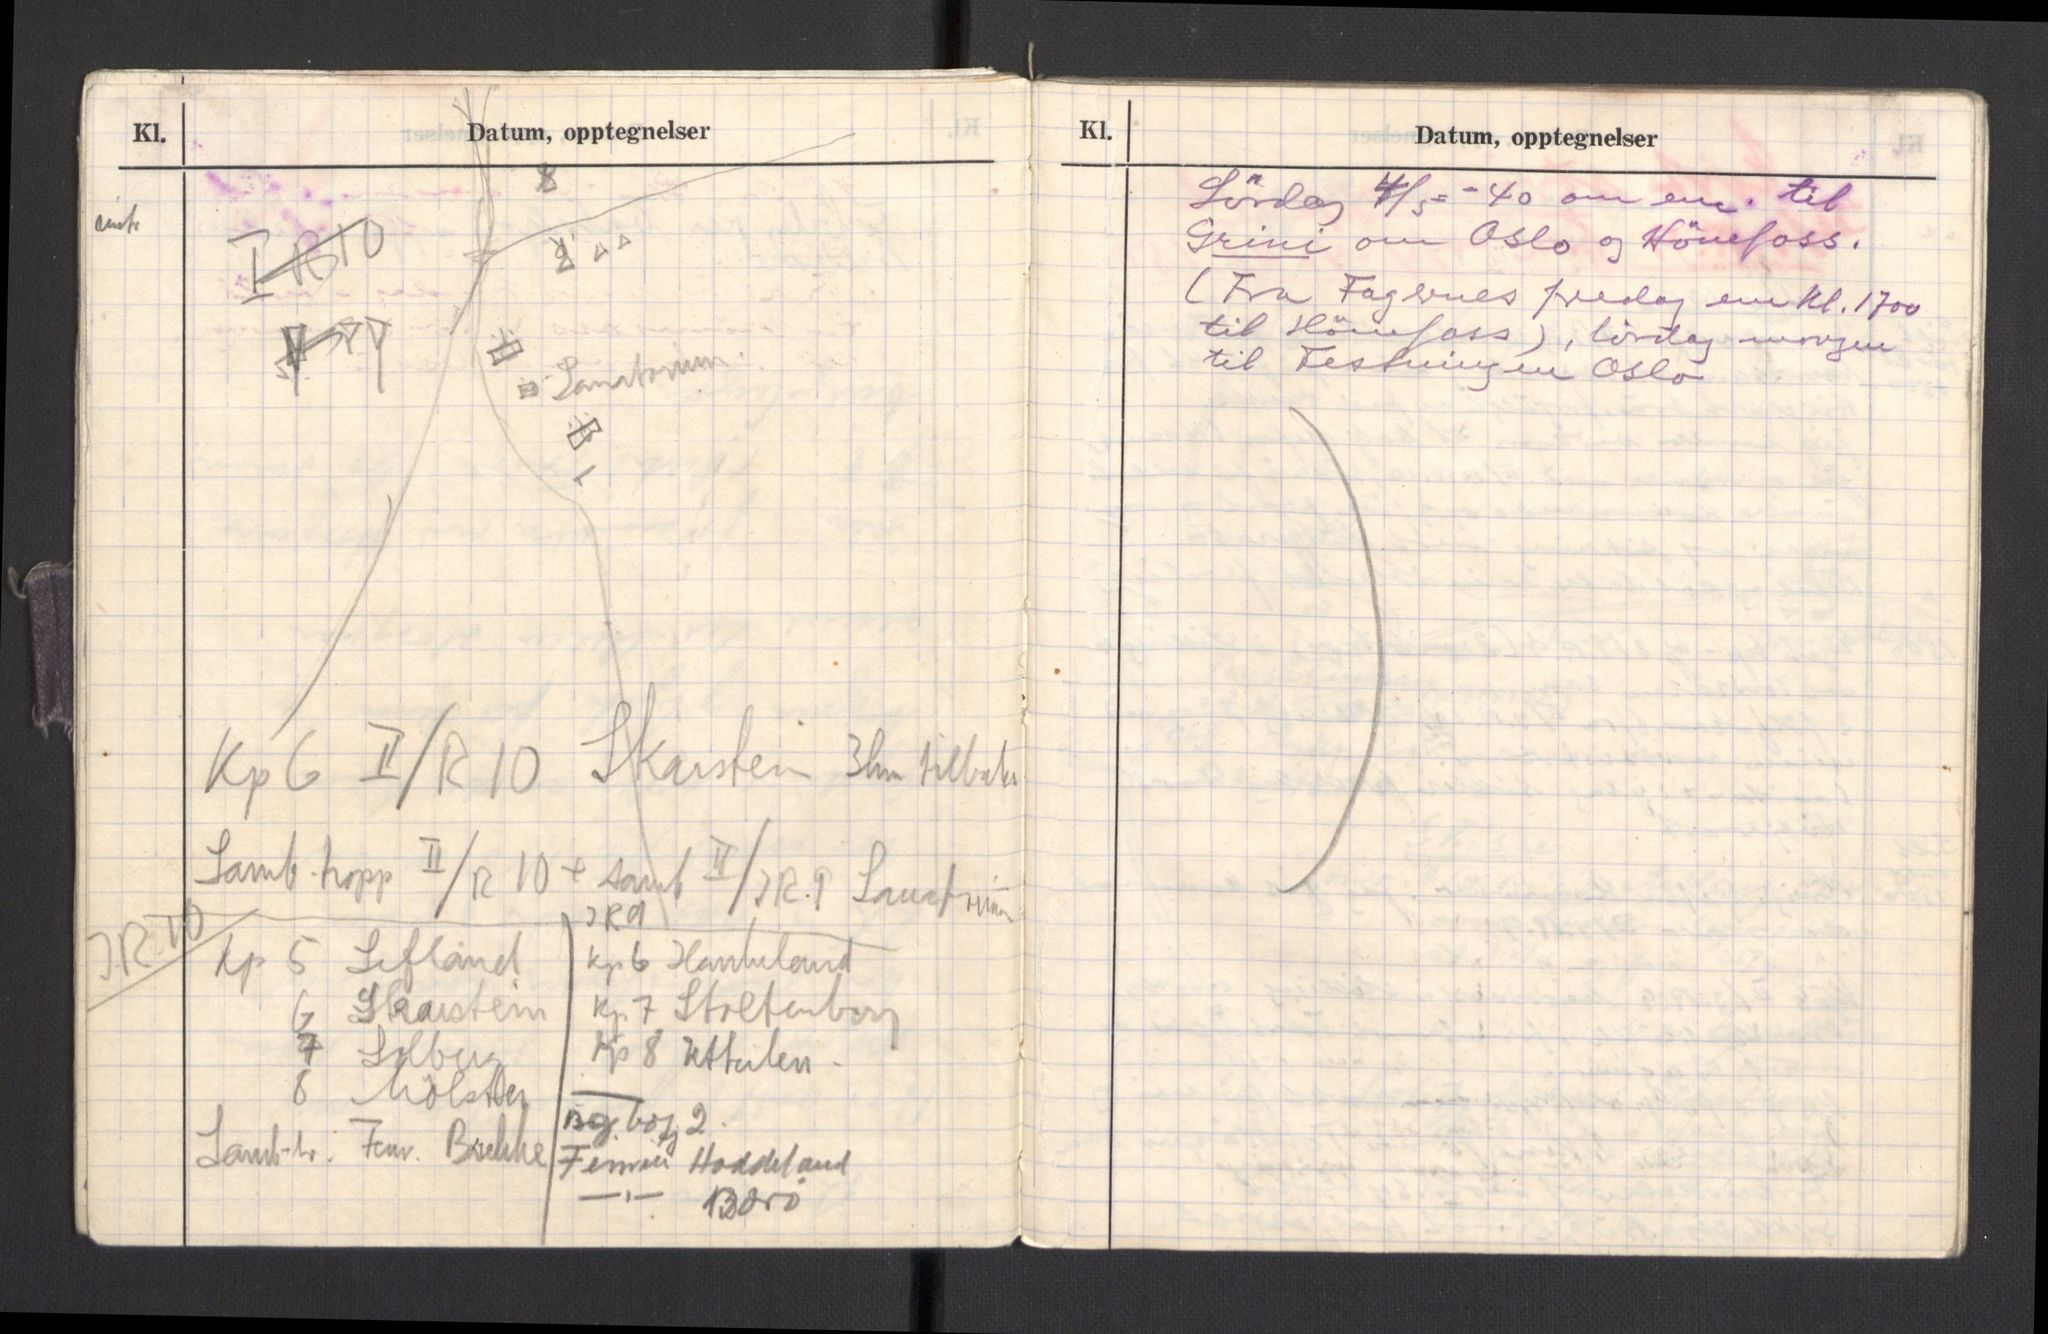 Kl.
Datum, opptegnelser
8
I R 10
Sanatorium.
Kp 6 II/R 10 Skarstein 3 km tilbake
Samb. tropp II/R 10 + samb II/IR.9 Sanatorium
IR 10
IR 9
Kp 5 Lefland
6 Skarstein
7 Solberg
8 Mölster
Samb-tr. Fenr. Brekke
Kp 6 Haukeland
Kp 7 Stoltenberg
Kp 8
2.
Fenrik Haddeland
—"— Börö
Kl.
Datum, opptegnelser
Lördag 4/5 - 40 om em. til
Grini om Oslo og Hönefoss.
(Fra Fagernes fredag em Kl. 1700
til Hönefoss), lördag morgen
til Festningen Oslo